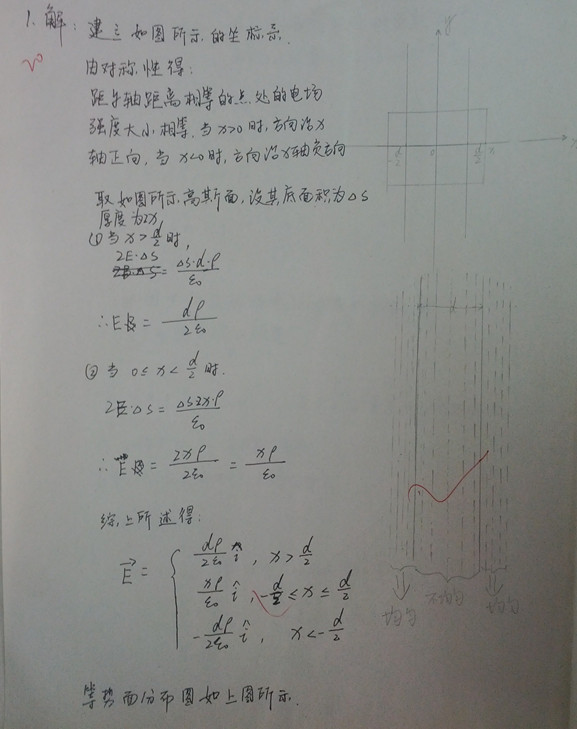 1. 解: 建立如图所示的坐标系.
20
由对称性得:
距y轴距离相等的点处的电场
强度大小相等, 当x>0时, 方向沿x
轴正向, 当x<0时, 方向沿x轴负方向
取如图所示高斯面, 设其底面积为△S
厚度为2x
(1) 当x>d/2时,
2E·△S = △S·d·ρ/ε₀
∴E = dρ/2ε₀
(2) 当 0≤x<d/2时.
2E·△S = △S2x·ρ/ε₀
∴E = 2xρ/2ε₀ = xρ/ε₀
综上所述得:
E⃗ = { dρ/2ε₀ î, x>d/2
xρ/ε₀ î, -d/2≤x≤d/2
-dρ/2ε₀ î, x<-d/2
等势面分布图如上图所示.
y
-d/2 0 d/2 x
d
均匀 不均匀 均匀